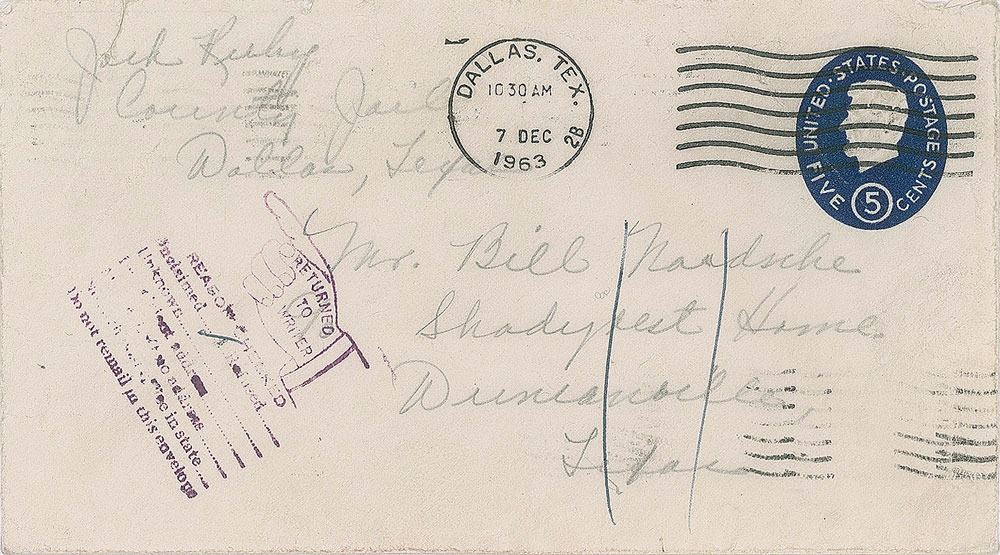 Jack Ruby
County Jail
Dallas, Texas
DALLAS, TEX.
10 30 AM
7 DEC
1963
2B
UNITED STATES POSTAGE
5
FIVE CENTS
Mr. Bill
Shadyrest Home
Duncanville,
Texas
RETURNED
TO
WRITER
REASON CHECKED
Unclaimed Refused
Unknown
address
no address
office in state
Do not remail in this envelope